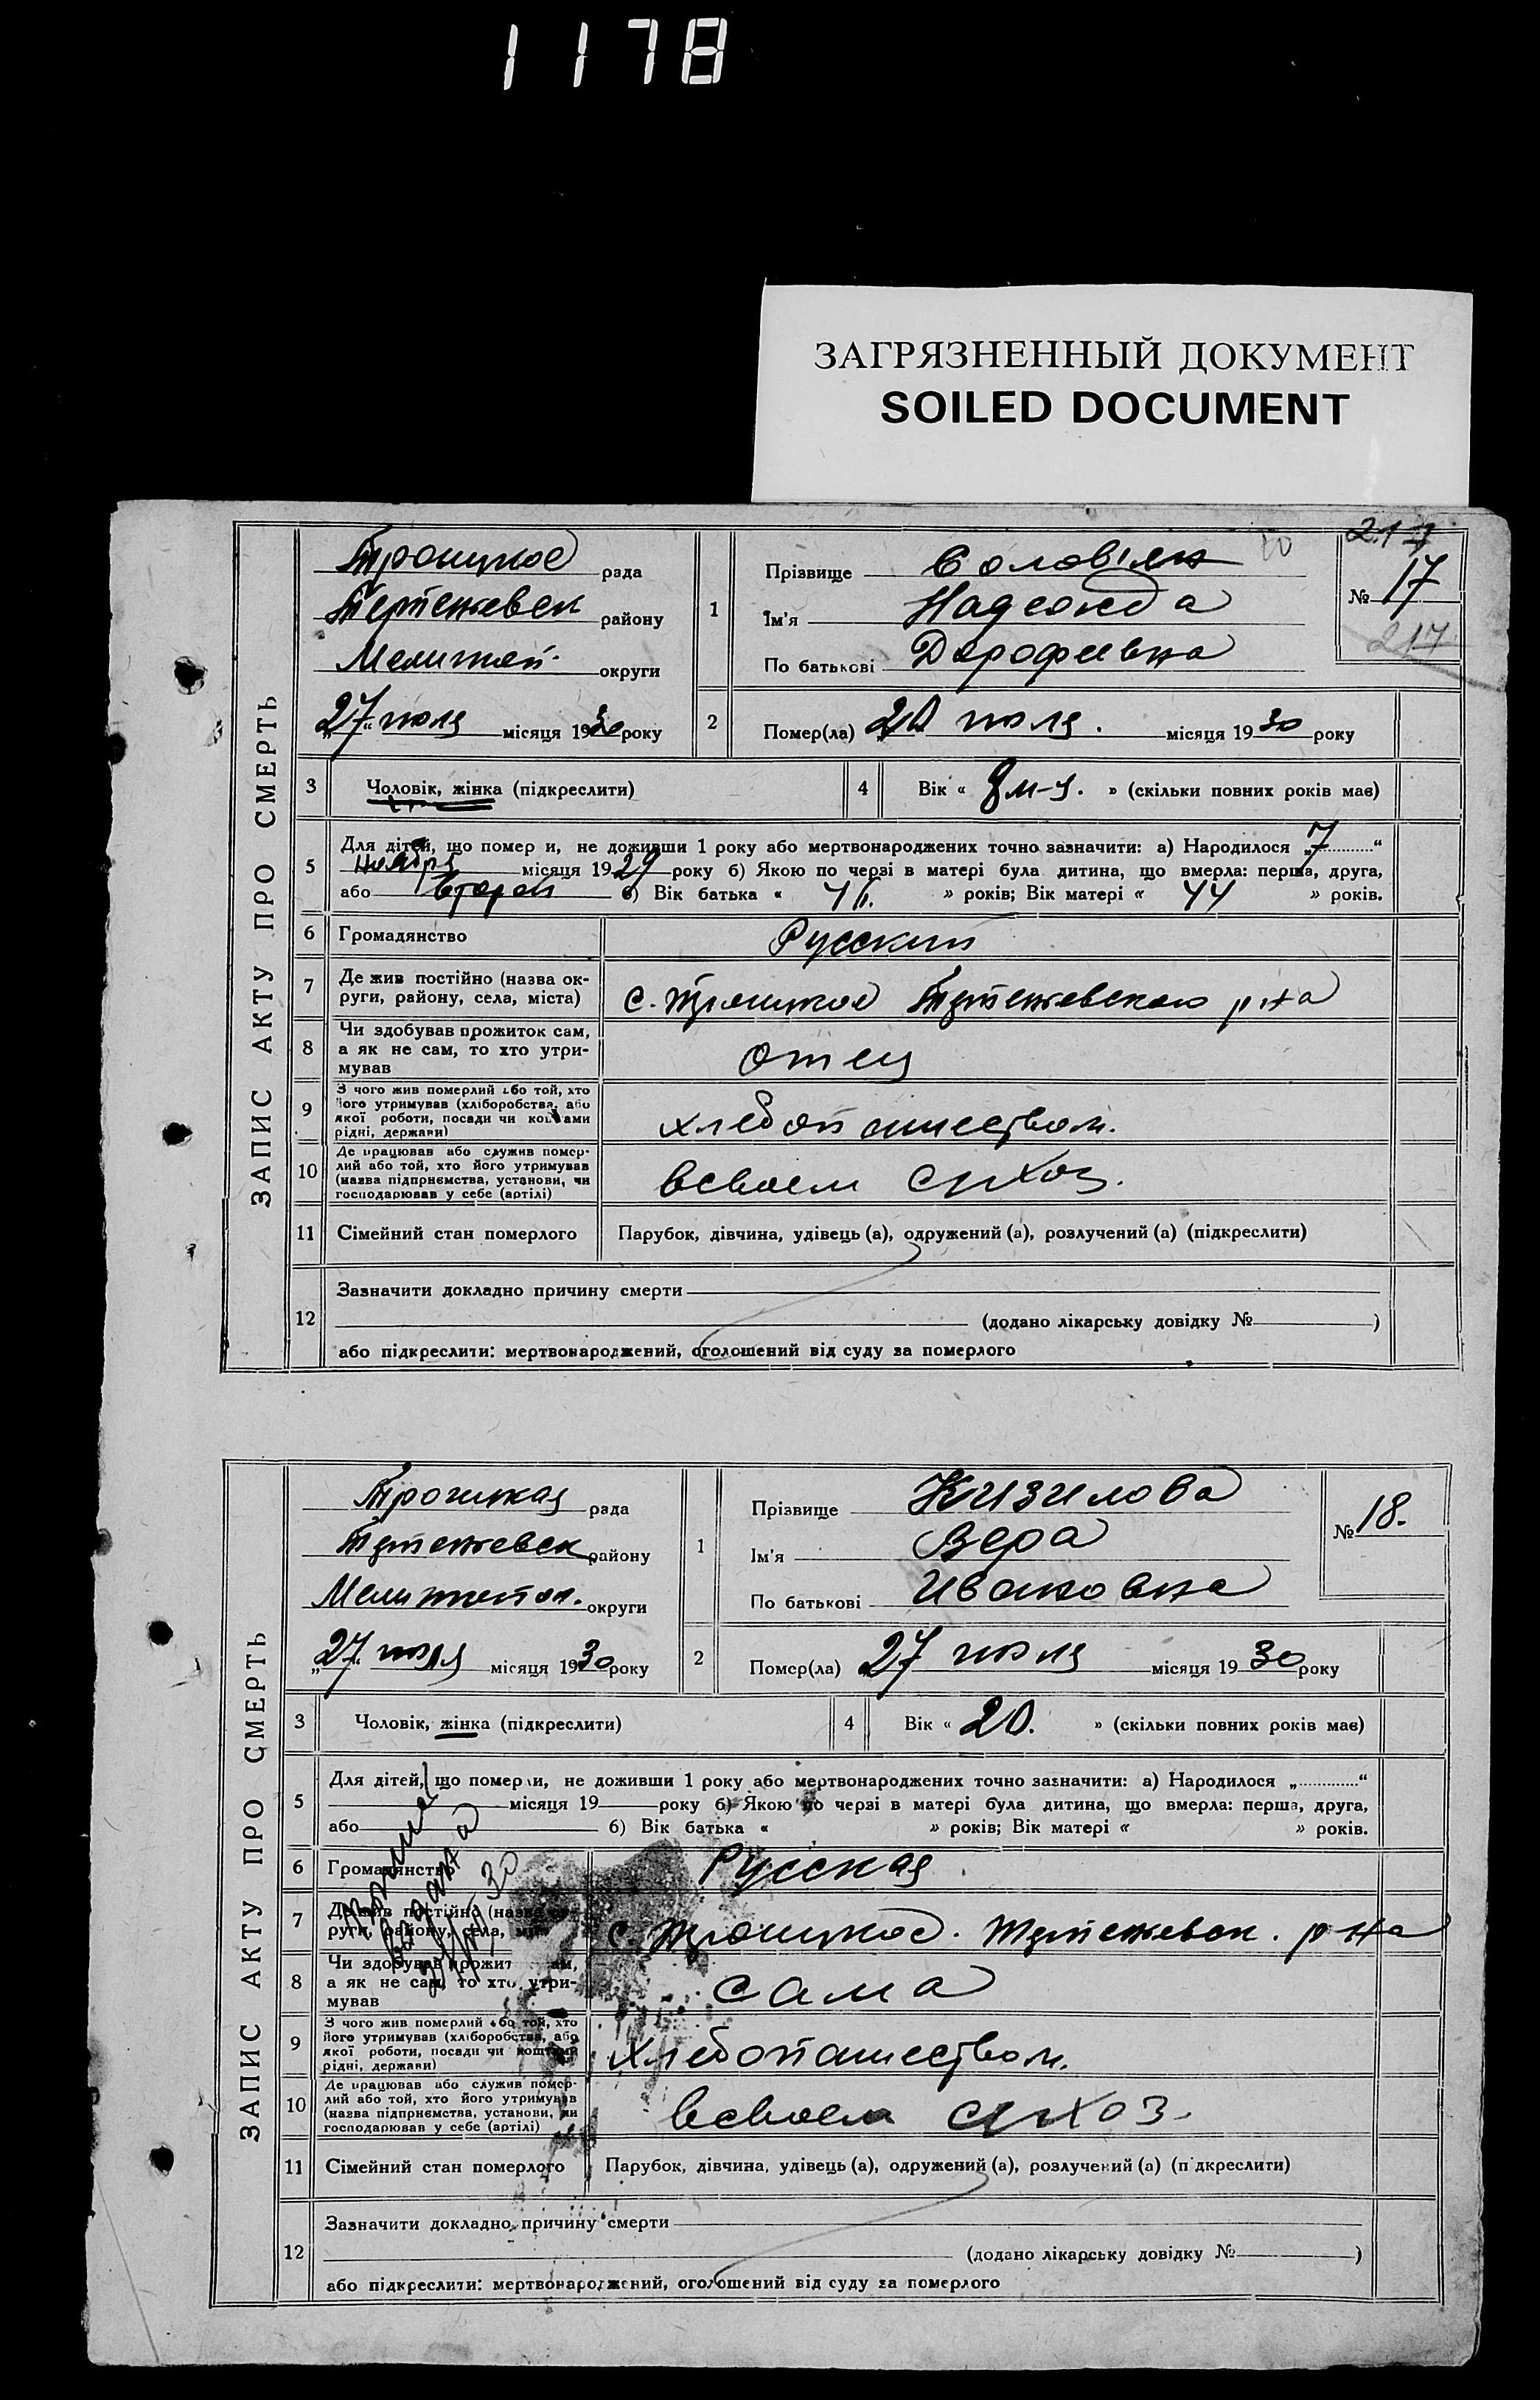 1178
ЗАГРЯЗНЕННЫЙ ДОКУМЕНТ
SOILED DOCUMENT
ЗАПИС АКТУ ПРО СМЕРТЬ
Троицкое рада
району
округи
„27“ июля місяця 1930 року
1 Прізвище
Ім'я Надежда
По батькові Дорофеевна
217
№ 17
217
2 Помер(ла) июля. місяця 1930 року
3 Чоловік, жінка (підкреслити)
4 Вік « 8 м-ц. » (скільки повних років має)
5 Для дітей, що померли, не доживши 1 року або мертвонароджених точно зазначити: а) Народилося „7“
ноября місяця 1929 року б) Якою по черзі в матері була дитина, що вмерла: перша, друга,
або второй в) Вік батька « » років; Вік матері « 44 » років.
6 Громадянство Русский
7 Де жив постійно (назва ок-
руги, району, села, міста) с. Троицкое р-на
8 Чи здобував прожиток сам,
а як не сам, то хто утри-
мував
отец
9 З чого жив померлий або той, хто
його утримував (хліборобства, або
якої роботи, посади чи коштами
рідні, держави)
хлебопашеством.
10 Де працював або служив помер-
лий або той, хто його утримував
(назва підприємства, установи, чи
господарював у себе (артілі)
в своем с-хоз.
11 Сімейний стан померлого Парубок, дівчина, удівець (а), одружений (а), розлучений (а) (підкреслити)
12 Зазначити докладно причину смерти
(додано лікарську довідку № )
або підкреслити: мертвонароджений, оголошений від суду за померлого
ЗАПИС АКТУ ПРО СМЕРТЬ
Троицкая рада
району
Мелитопол. округи
„27“ июля місяця 1930 року
1 Прізвище Кизилова
Ім'я Вера
По батькові Ивановна
№ 18.
2 Помер(ла) 27 июля місяця 1930 року
3 Чоловік, жінка (підкреслити)
4 Вік « 20. » (скільки повних років має)
5 Для дітей, що померли, не доживши 1 року або мертвонароджених точно зазначити: а) Народилося „ “
місяця 19 року б) Якою по черзі в матері була дитина, що вмерла: перша, друга,
або б) Вік батька « » років; Вік матері « » років.
выдана
30
6 Громадянство Русская
7 Де жив постійно (назва ок-
руги, району, села, міста) с. Троицкое. р-на
8 Чи здобував прожиток сам,
а як не сам, то хто утри-
мував
сама
9 З чого жив померлий або той, хто
його утримував (хліборобства, або
якої роботи, посади чи коштами
рідні, держави)
хлебопашеством.
10 Де працював або служив помер-
лий або той, хто його утримував
(назва підприємства, установи, чи
господарював у себе (артілі)
в своем с-хоз.
11 Сімейний стан померлого Парубок, дівчина, удівець (а), одружений (а), розлучений (а) (підкреслити)
12 Зазначити докладно причину смерти
(додано лікарську довідку № )
або підкреслити: мертвонароджений, оголошений від суду за померлого